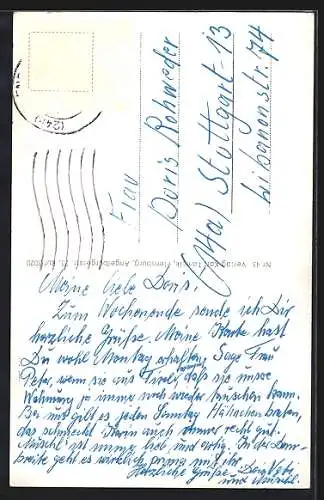 Frau
Doris Rohweder
(14a) Stuttgart-13
Libanonstr. 74
Nr. 43 Verlag Karl
Flensburg, Angelburgerstr.
(24b)
Meine liebe Doris!
Zum Wochenende sende ich Dir
herzliche Grüße. Meine Karte hast
Du wohl Montag erhalten. Sage Frau
Peter, wenn sie aus Tirol kommt, daß sie unsre
Wohnung ja immer noch wieder tauschen kann.
Bei uns gibt es jeden Sonntag Hähnchenbraten,
das schmeckt Karin auch immer recht gut.
Muschi ist immer lieb und artig. In der
geht es wirklich prima mit ihr.
Herzliche Grüße
und Muschi.